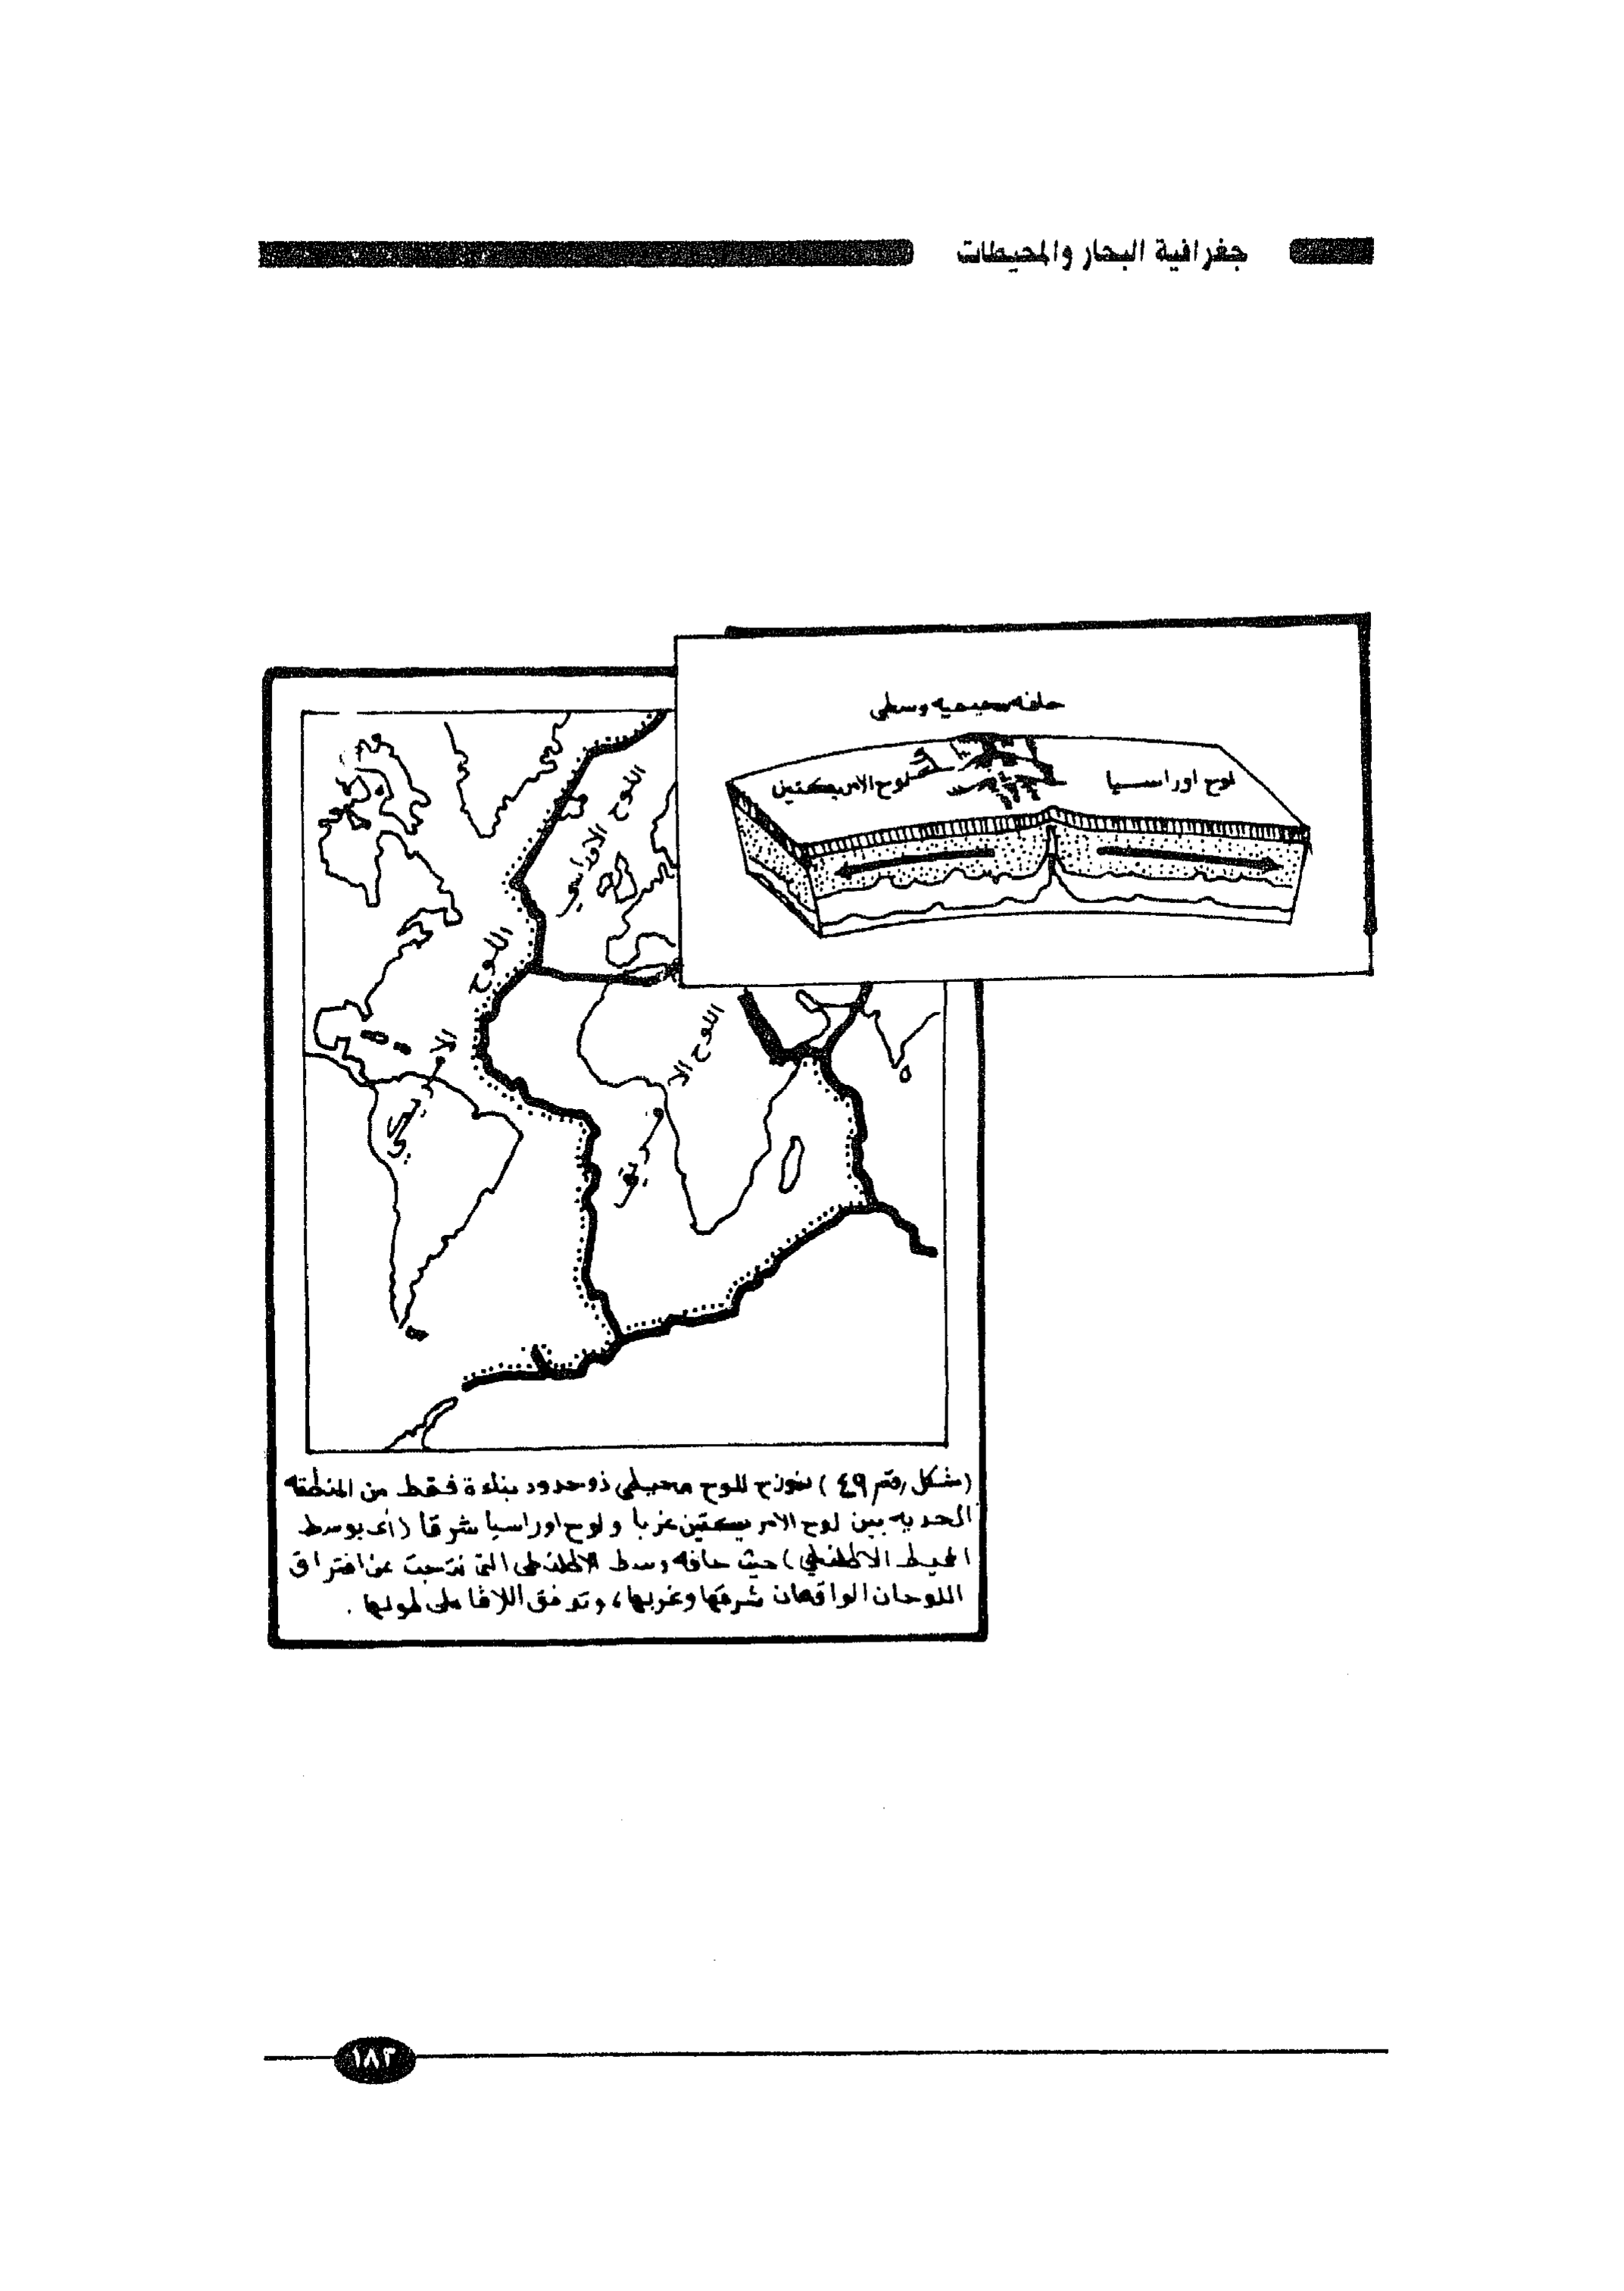 جغرافية البحار والمحيطات
حافه محيطيه وسطى
لوح الامريكتين
لوح اوراسيا
اللوح الاوراسى
اللوح الامريكى
اللوح الافريقى
(شكل رقم ٤٩) نموذج للوح محيطى ذو حدود بناءة فقط من المنطقه
الحديه بين لوح الامريكتين غربا ولوح اوراسيا شرقا (أى بوسط
المحيط الاطلنطى) حيث حافه وسط الاطلنطى التى نتجت عن افتراق
اللوحان الواقعان شرقها وغربها، وتدفق اللافا على طولها.
١٨٣